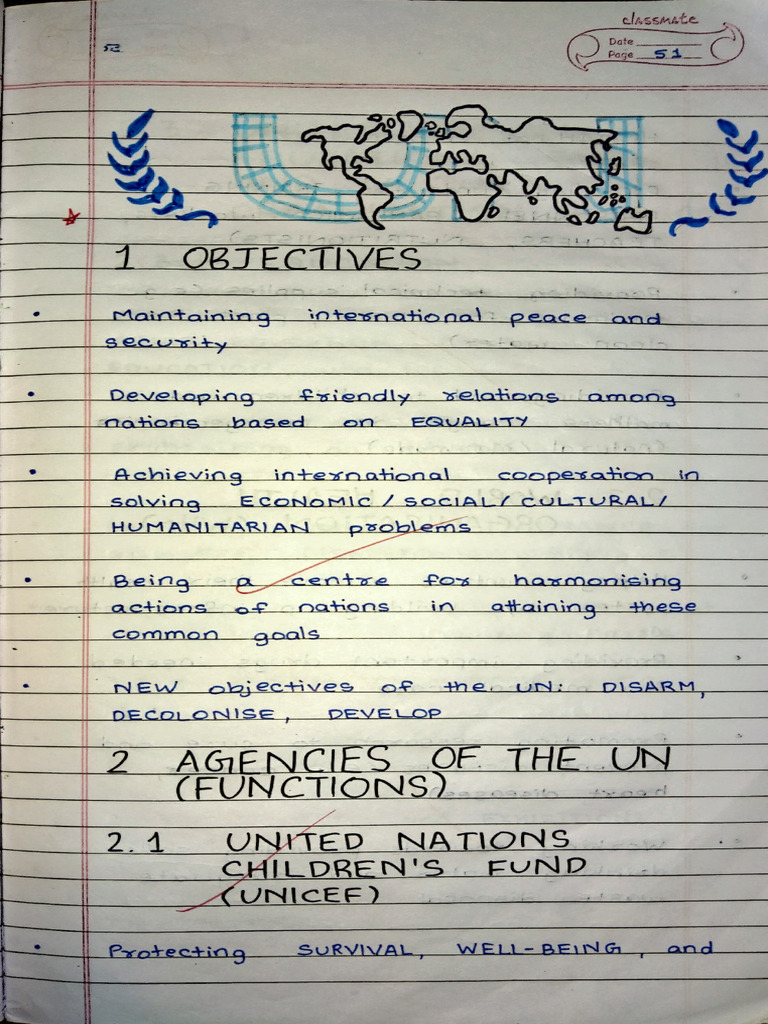 classmate
Date
Page 51
52
UN
1 OBJECTIVES
• Maintaining international peace and
security
• Developing friendly relations among
nations based on EQUALITY
• Achieving international cooperation in
solving ECONOMIC/SOCIAL/CULTURAL/
HUMANITARIAN problems
• Being a centre for harmonising
actions of nations in attaining these
common goals
• NEW objectives of the UN: DISARM,
DECOLONISE, DEVELOP
2 AGENCIES OF THE UN
(FUNCTIONS)
2.1 UNITED NATIONS
CHILDREN'S FUND
(UNICEF)
• Protecting SURVIVAL, WELL-BEING, and